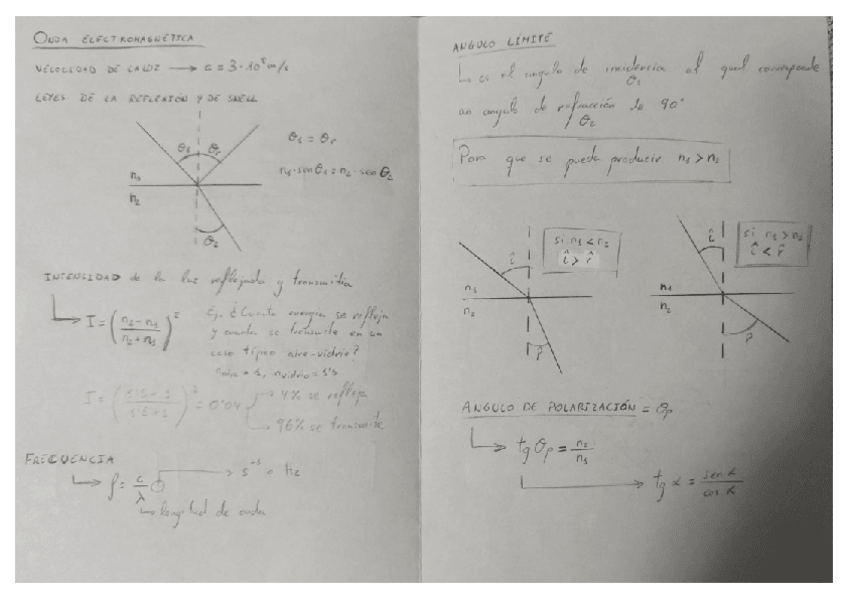 ONDA ELECTROMAGNÉTICA
VELOCIDAD DE LA LUZ → c = 3·10⁸ m/s
LEYES DE LA REFLEXIÓN Y DE SNELL
θ₁ θᵣ
n₁
n₂
θ₂
θ₁ = θᵣ
n₁·senθ₁ = n₂·senθ₂
INTENSIDAD de la luz reflejada y transmitia
I = ((n₂-n₁)/(n₂+n₁))²
Ej. ¿Cuanta energia se refleja
y cuanta se transmite en un
caso típico aire-vidrio?
naire = 1, nvidrio = 1'5
I = ((1'5-1)/(1'5+1))² = 0'04
→ 4% se refleja
→ 96% se transmite
FRECUENCIA
f = c/λ → s⁻¹ o Hz
longitud de onda
ANGULO LÍMITE
es el angulo de incidencia al qual corresponde
θ₁
un angulo de refracción de 90°
θ₂
Para que se pueda producir n₁ > n₂
î
n₁
n₂
r̂
si n₁ < n₂
î > r̂
î
n₁
n₂
r̂
si n₁ > n₂
î < r̂
ANGULO DE POLARIZACIÓN = θp
tg θp = n₂/n₁
tg α = sen α/cos α